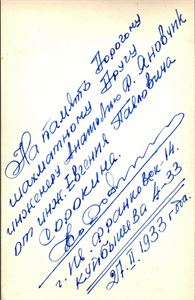 На память Дорогому
шахматному Другу
инженеру Анатолию Р. Яновчик
от инж. Евгения Павловича
Сорокина.
г. Ив.-Франковск 14.
Куйбышева 4-33
27.II.1933 года.